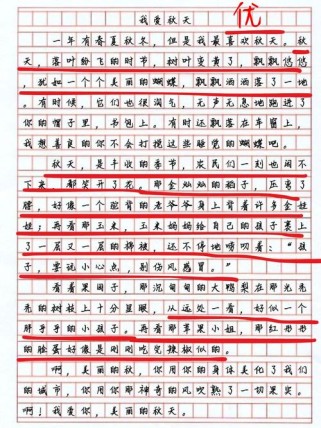 优
我爱秋天
一年有春夏秋冬，但是我最喜欢秋天。秋
天，落叶纷飞的时节，树叶变黄了，飘飘悠悠
，就如一个个美丽的蝴蝶，飘飘洒洒落了一地
。有时候，它们也很淘气，无声无息地跑进了
你的帽子里，书包上。有时还飘落在车窗上，
我想善良的你不会打搅这些睡觉的蝴蝶吧。
秋天，是丰收的季节，农民们一刻也闲不
下来，都笑开了花，那金灿灿的稻子，压弯了
腰，好像一个驼背的老爷爷身上背着许多金娃
娃；再看那玉米，玉米妈妈给自己的孩子裹上
了一层又一层的棉被，还不停地唠叨着：“孩
子，要说小心点，别伤风感冒。”
看看果园子，那沉甸甸的大鸭梨在那光亮
亮的树枝上十分显眼，从远处一看，好似一个
胖乎乎的小孩子。再看那苹果小姐，那红彤彤
的脸蛋好像是刚刚吃完辣椒似的。
啊，美丽的秋，你用你的身体美化了我们
的城市，你用那神奇的风吹熟了一切果实。
啊！我爱你，美丽的秋天。